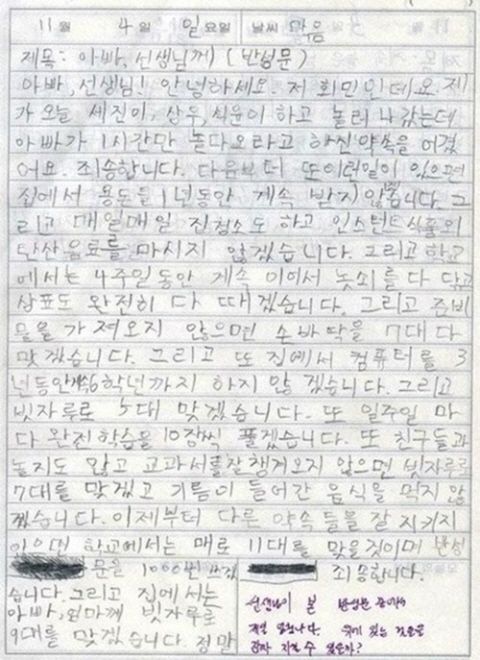 11월 4일 일요일 날씨 맑음
제목: 아빠, 선생님께 (반성문)
아빠, 선생님! 안녕하세요. 저 희민인데요. 제
가 오늘 세진이, 상우, 식운이 하고 놀러 나갔는데
아빠가 1시간만 놀다오라고 하신약속을 어겼
어요. 죄송합니다. 다음부터 또이런일이 있으면
집에서 용돈을 1년동안 계속 받지 않겠습니다. 그
리고 매일매일 집청소도 하고 인스턴트식품와
탄산음료를 마시지 않겠습니다. 그리고 학교
에서는 4주일동안 계속 이어서 놋쇠를 다 닦고
상표도 완전히 다 떼겠습니다. 그리고 준비
물을 가져오지 않으면 손바닥을 7대 다
맞겠습니다. 그리고 또 집에서 컴퓨터를 3
년동안 6학년까지 하지 않겠습니다. 그리고
빗자루로 5대 맞겠습니다. 또 일주일 마
다 완전학습을 10장씩 풀겠습니다. 또 친구들과
놀지도 않고 교과서를 잘 챙겨오지 않으면 빗자루로
7대를 맞겠고 기름이 들어간 음식을 먹지 않
겠습니다. 이제부터 다른 약속들을 잘 지키지
않으면 학교에서는 매로 11대를 맞을것이며 반성
문을 1000번 쓰겠
습니다. 그리고 집에서는
아빠, 엄마께 빗자루로
9대를 맞겠습니다. 정말
죄송합니다.
선생님이 본 반성문 중에서
제일 답니다.